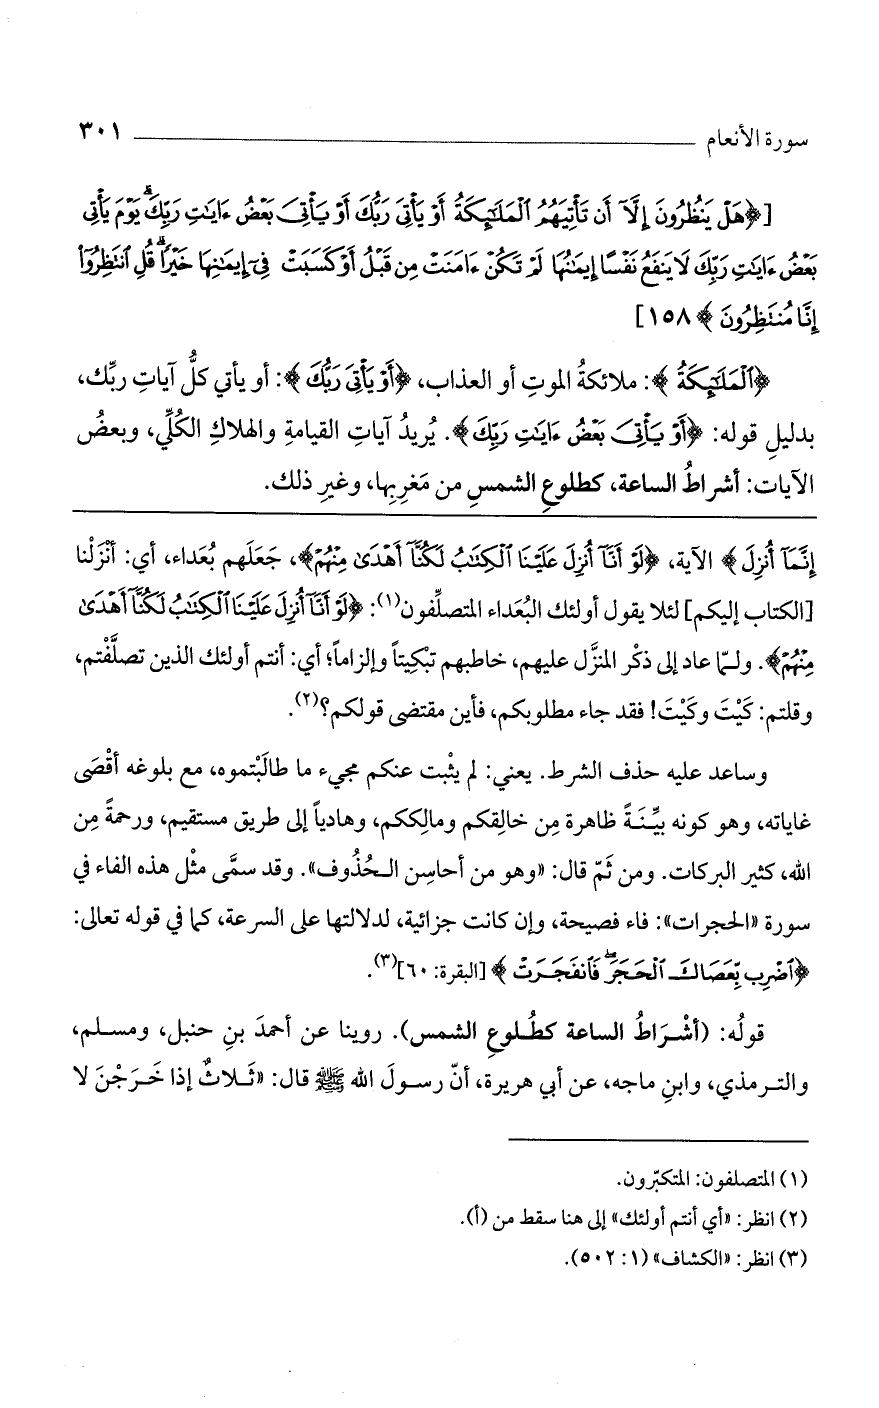 سورة الأنعام ٣٠١
[﴿هَلْ يَنظُرُونَ إِلَّآ أَن تَأْتِيَهُمُ ٱلْمَلَـٰٓئِكَةُ أَوْ يَأْتِىَ رَبُّكَ أَوْ يَأْتِىَ بَعْضُ ءَايَـٰتِ رَبِّكَۗ يَوْمَ يَأْتِى
بَعْضُ ءَايَـٰتِ رَبِّكَ لَا يَنفَعُ نَفْسًا إِيمَـٰنُهَا لَمْ تَكُنْ ءَامَنَتْ مِن قَبْلُ أَوْ كَسَبَتْ فِىٓ إِيمَـٰنِهَا خَيْرًاۗ قُلِ ٱنتَظِرُوٓا۟
إِنَّا مُنتَظِرُونَ﴾ ١٥٨]
﴿ٱلْمَلَـٰٓئِكَةُ﴾: ملائكةُ الموتِ أو العذاب، ﴿أَوْ يَأْتِىَ رَبُّكَ﴾: أو يأتي كلُّ آياتِ ربِّك،
بدليلِ قوله: ﴿أَوْ يَأْتِىَ بَعْضُ ءَايَـٰتِ رَبِّكَ﴾. يُريدُ آياتِ القيامةِ والهلاكِ الكُلِّي، وبعضُ
الآيات: أشراطُ الساعة، كطلوعِ الشمسِ من مَغرِبِها، وغيرِ ذلك.
إِنَّمَآ أُنزِلَ﴾ الآية، ﴿لَوْ أَنَّآ أُنزِلَ عَلَيْنَا ٱلْكِتَـٰبُ لَكُنَّآ أَهْدَىٰ مِنْهُمْ﴾، جعَلَهم بُعَداء، أي: أنْزَلْنا
[الكتاب إليكم] لئلا يقول أولئك البُعَداء المتصلِّفون(١): ﴿لَوْ أَنَّآ أُنزِلَ عَلَيْنَا ٱلْكِتَـٰبُ لَكُنَّآ أَهْدَىٰ
مِنْهُمْ﴾. ولـمّا عاد إلى ذكْر المنزَّل عليهم، خاطبهم تبْكِيتاً وإلزاماً؛ أي: أنتم أولئك الذين تصلَّفْتم،
وقلتم: كَيْتَ وكَيْتَ! فقد جاء مطلوبكم، فأين مقتضى قولكم؟(٢).
وساعد عليه حذف الشرط. يعني: لم يثْبت عنكم مجيء ما طالَبْتموه، مع بلوغه أقْصَى
غاياته، وهو كونه بيِّنَةً ظاهرة مِن خالِقكم ومالِككم، وهادياً إلى طريق مستقيم، ورحمةً مِن
الله، كثير البركات. ومن ثَمّ قال: «وهو من أحاسِن الـحُذُوف». وقد سمَّى مثْل هذه الفاء في
سورة «الحجرات»: فاء فصيحة، وإن كانت جزائية، لدلالتها على السرعة، كما في قوله تعالى:
﴿ٱضْرِب بِّعَصَاكَ ٱلْحَجَرَۖ فَٱنفَجَرَتْ﴾ [البقرة: ٦٠](٣).
قولُه: (أشْراطُ الساعة كطُلوعِ الشمس). روينا عن أحمدَ بنِ حنبل، ومسلم،
والترمذي، وابنِ ماجه، عن أبي هريرة، أنّ رسولَ الله ﷺ قال: «ثَلاثٌ إذا خَرَجْنَ لا
(١) المتصلفون: المتكبّرون.
(٢) انظر: «أي أنتم أولئك» إلى هنا سقط من (أ).
(٣) انظر: «الكشاف» (١: ٥٠٢).